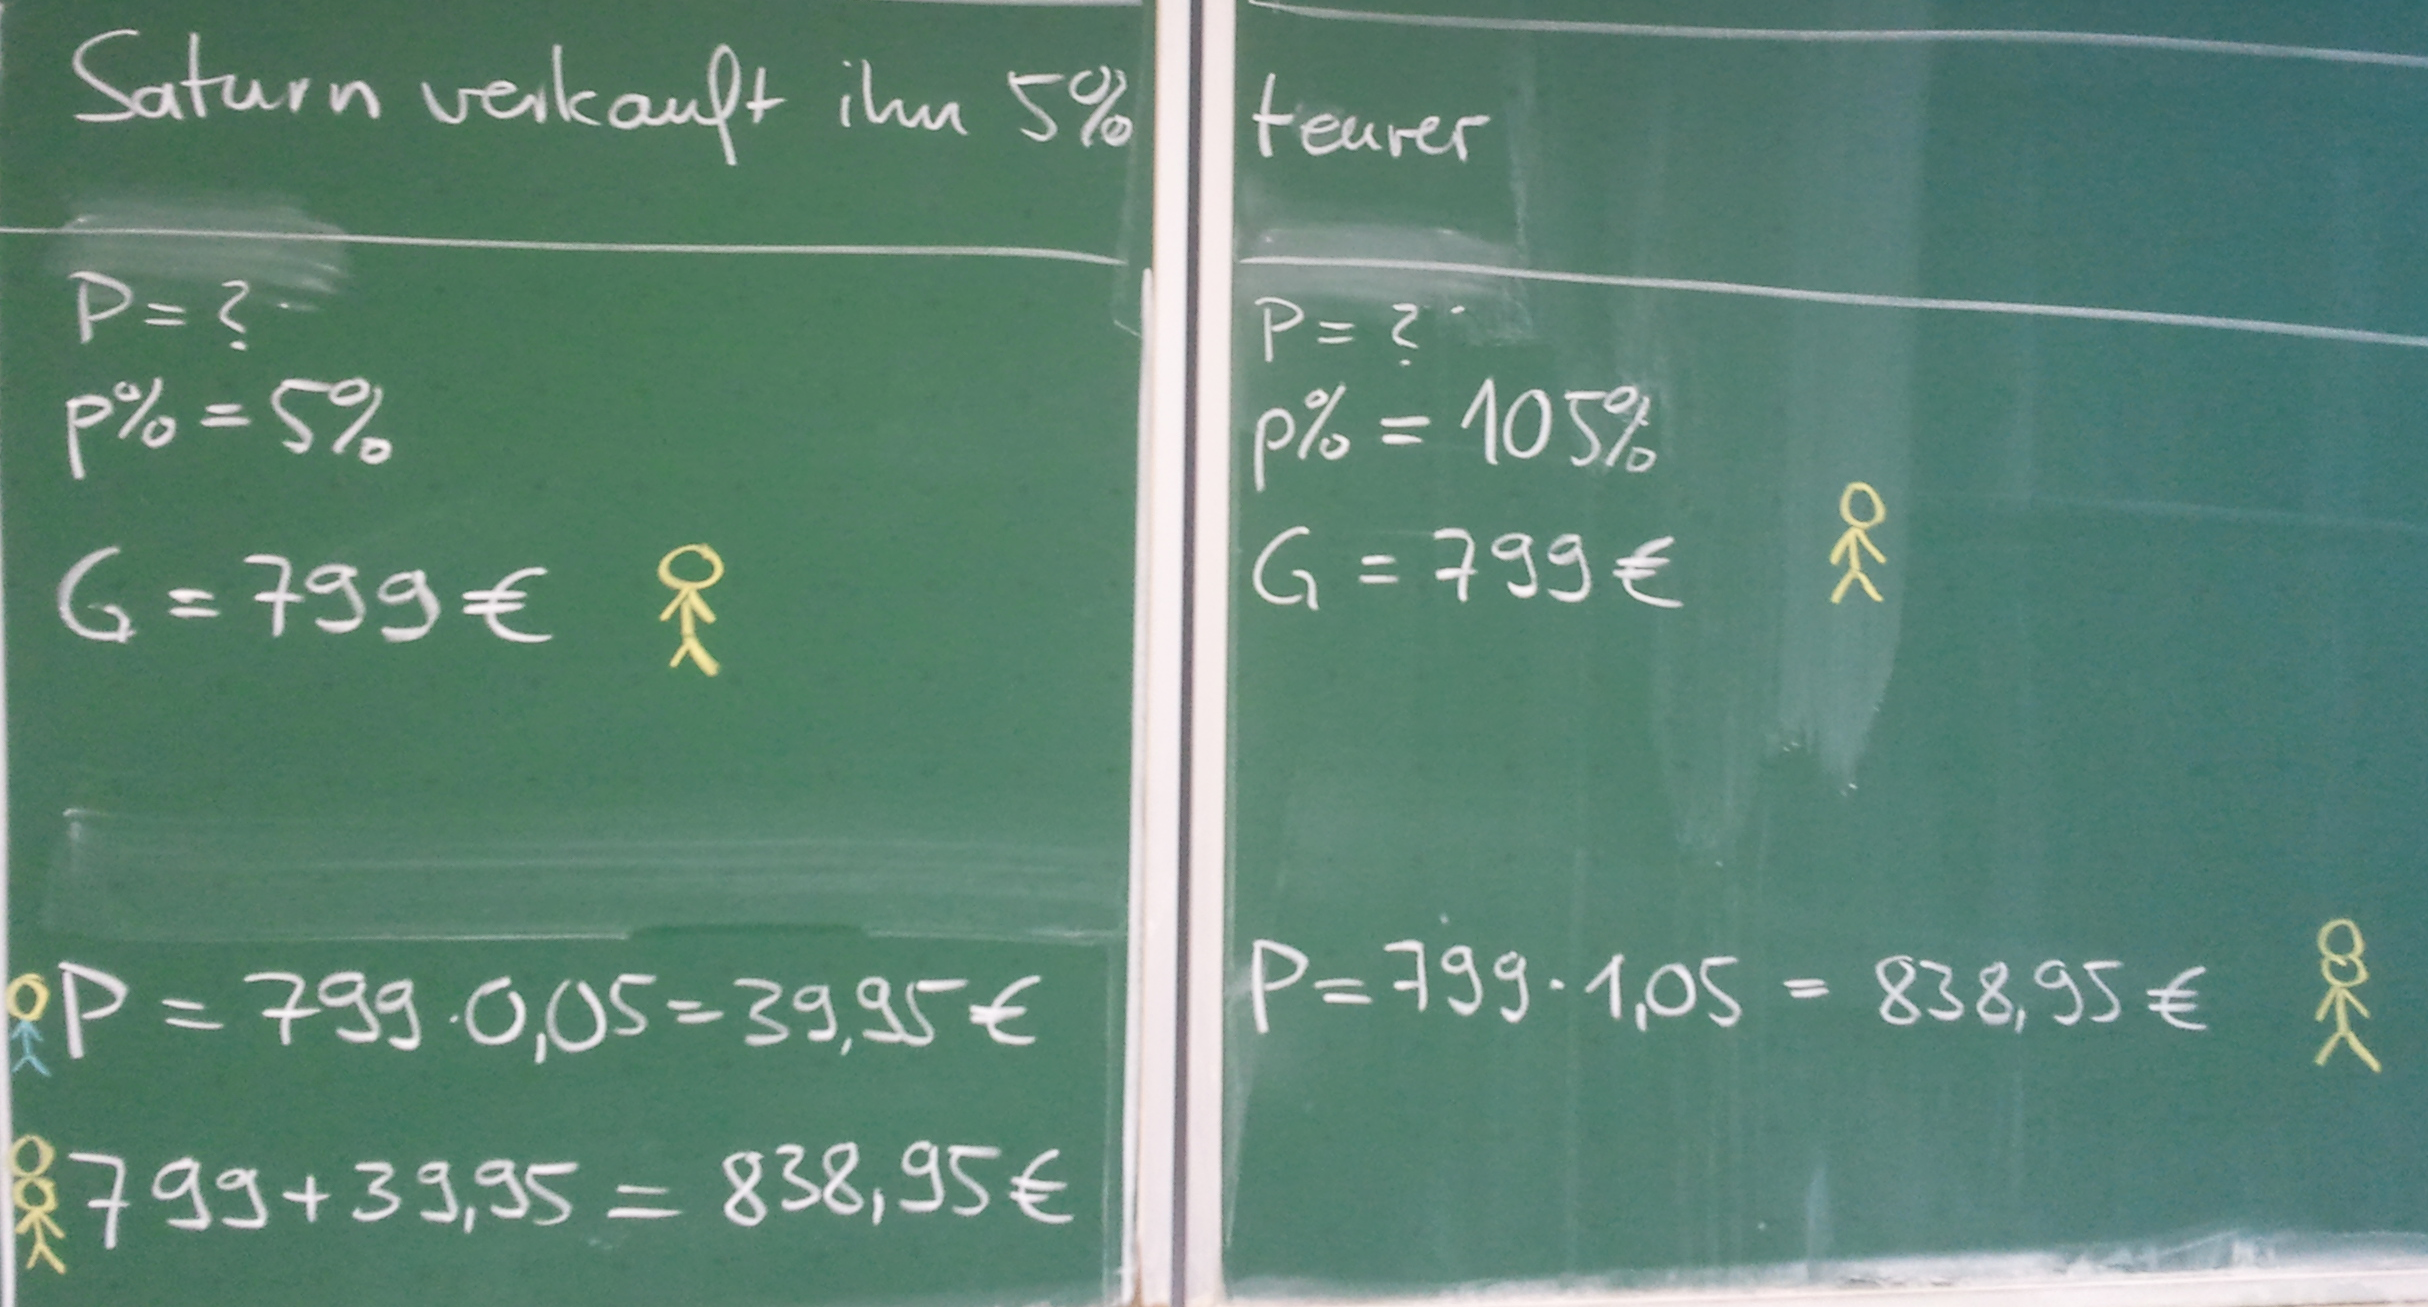 Saturn verkauft ihn 5% teurer
P = ?
p% = 5%
G = 799 €
P = 799 · 0,05 = 39,95 €
799 + 39,95 = 838,95 €
P = ?
p% = 105%
G = 799 €
P = 799 · 1,05 = 838,95 €